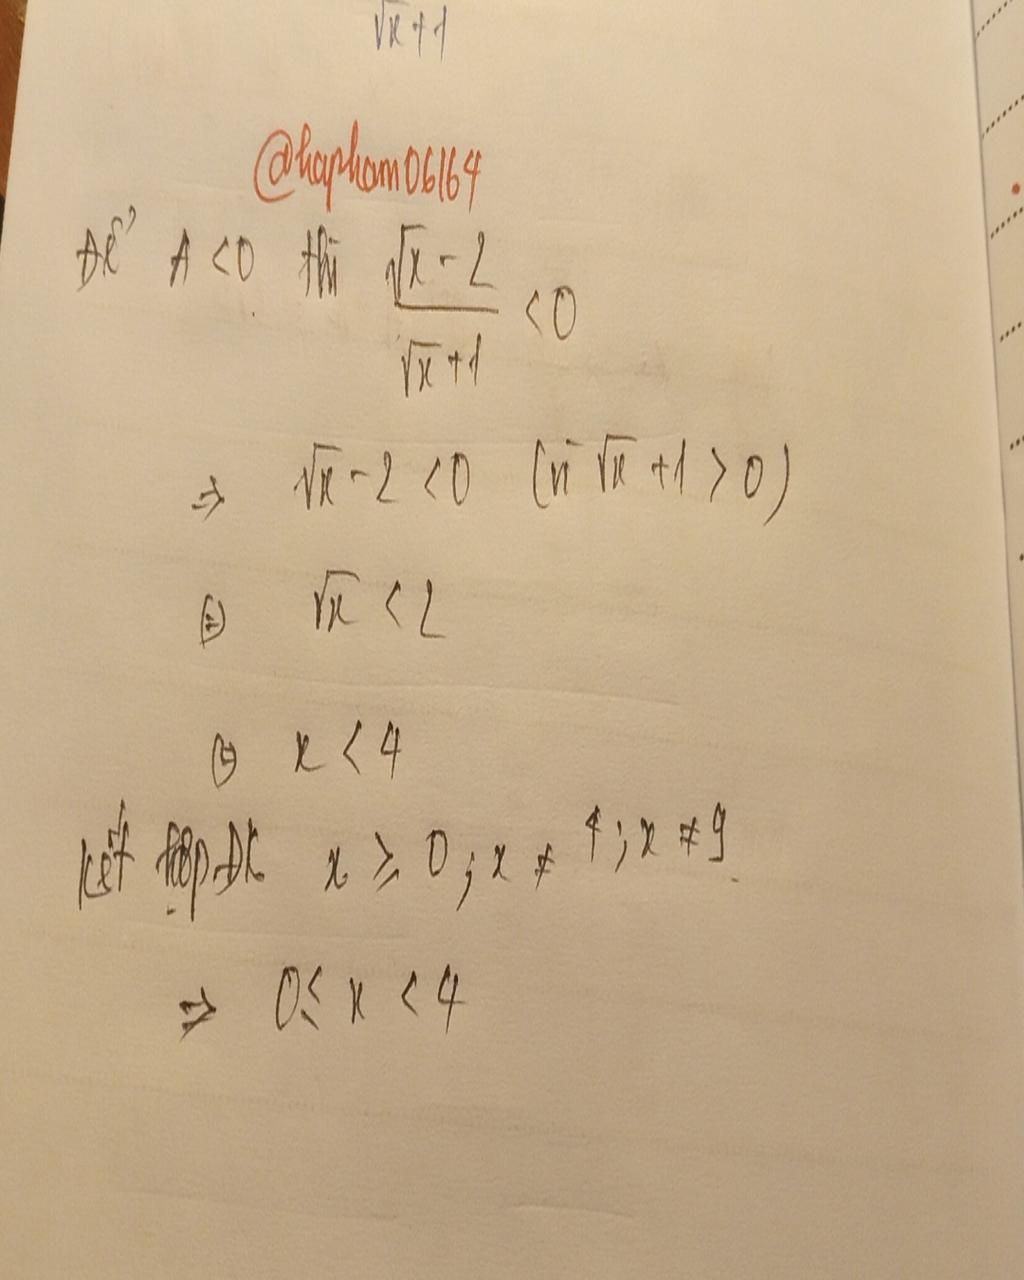 √x + 1
@hapham06164
Để A < 0 thì (√x - 2)/(√x + 1) < 0
⇒ √x - 2 < 0 (vì √x + 1 > 0)
⇔ √x < 2
⇔ x < 4
Kết hợp ĐK x ≥ 0; x ≠ 4; x ≠ 9
⇒ 0 ≤ x < 4